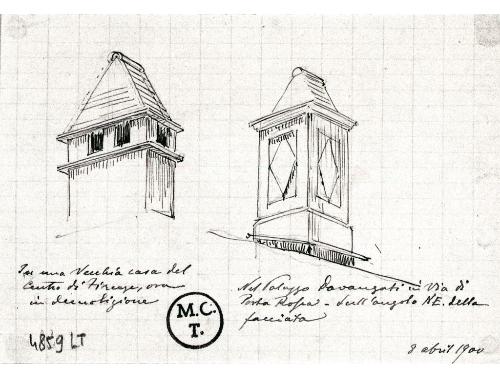 In una Vecchia casa del
Centro di Firenze, ora
in demolizione
Nel Palazzo Davanzati in Via di
Porta Rossa - sull'angolo NE. della
facciata
M.C.
T.
4859 LT
8 abril 1900